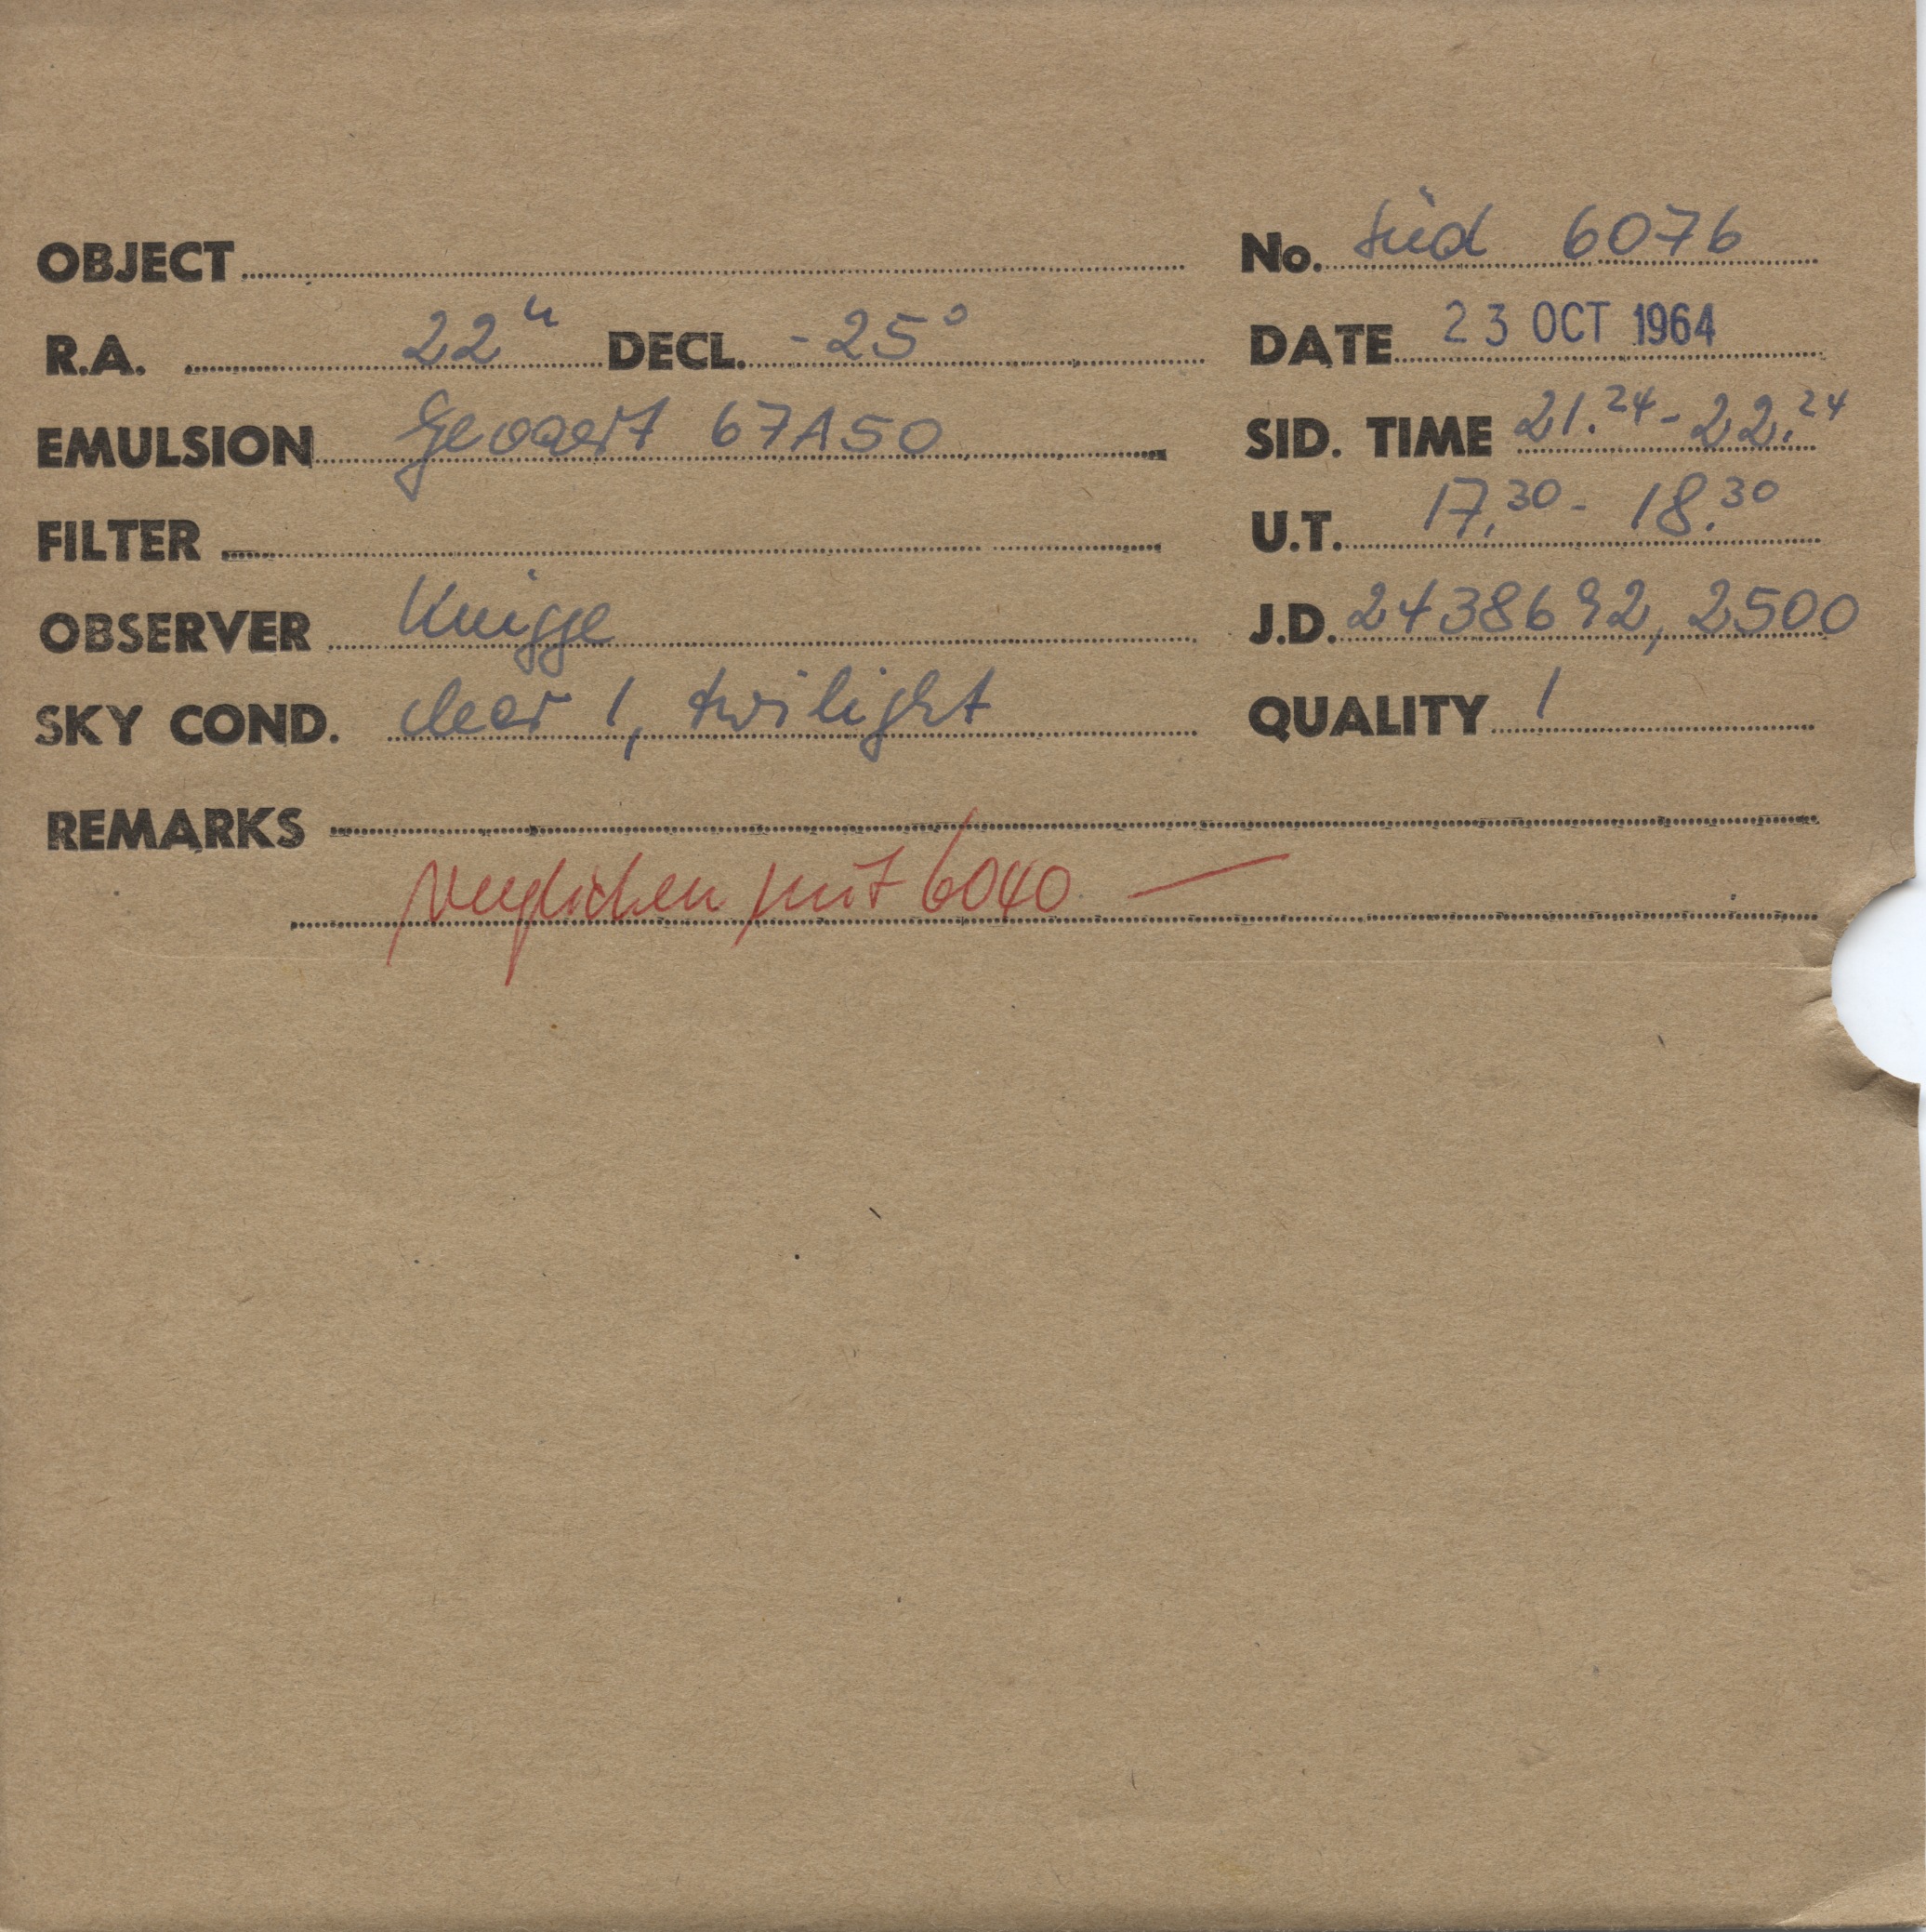 OBJECT
No. Süd 6076
R.A. 22h DECL. -25°
DATE 23 OCT 1964
EMULSION Gevaert 67A50
SID. TIME 21.24 - 22.24
FILTER
U.T. 17.30 - 18.30
OBSERVER Knigge
J.D. 2438692,2500
SKY COND. clear 1, twilight
QUALITY 1
REMARKS
verglichen mit 6040 —